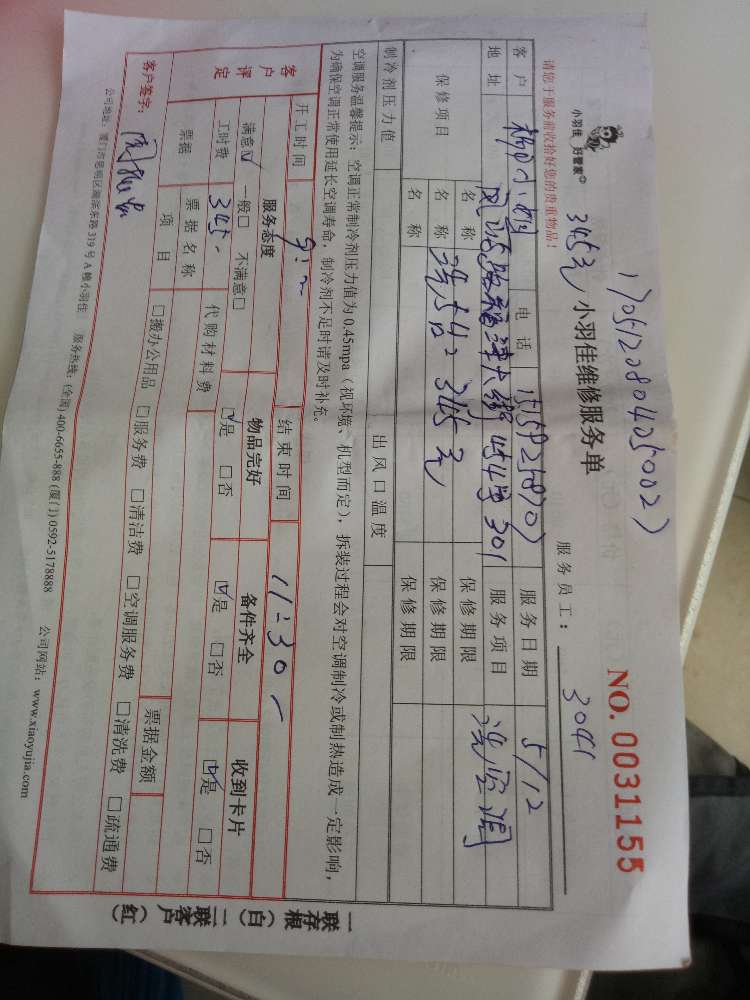 170512080402500２)
小羽佳 好管家
345元 小羽佳维修服务单
NO. 0031155
请您于服务前收拾好您的贵重物品!
服务员工: 3041
客户 电话 服务日期 5/12
地址 454号301 服务项目 洗空调
保修项目 名称 保修期限
名称 洗 345元 保修期限
名称 保修期限
制冷剂压力值 出风口温度
空调服务温馨提示: 空调正常制冷剂压力值为0.45mpa (视环境、机型而定), 拆装过程会对空调制冷或制热造成一定影响,
为确保空调正常使用延长空调寿命, 制冷剂不足时请及时补充。
开工时间 9: 结束时间 11:30
客户评定 服务态度 物品完好 备件齐全 收到卡片
满意☑ 一般□ 不满意□ ☑是 □否 ☑是 □否 ☑是 □否
工时费 345- 代购材料费
票据 票据名称 票据金额
项目 □搬办公用品 □服务费 □清洁费 □空调服务费 □清洗费 □疏通费
客户签字:
公司地址: 厦门市思明区湖滨东路319号A幢小羽佳 服务热线: (全国) 400-6655-888 (厦门) 0592-5178888 公司网站: www.xiaoyujia.com
一联存根(白) 二联客户(红)